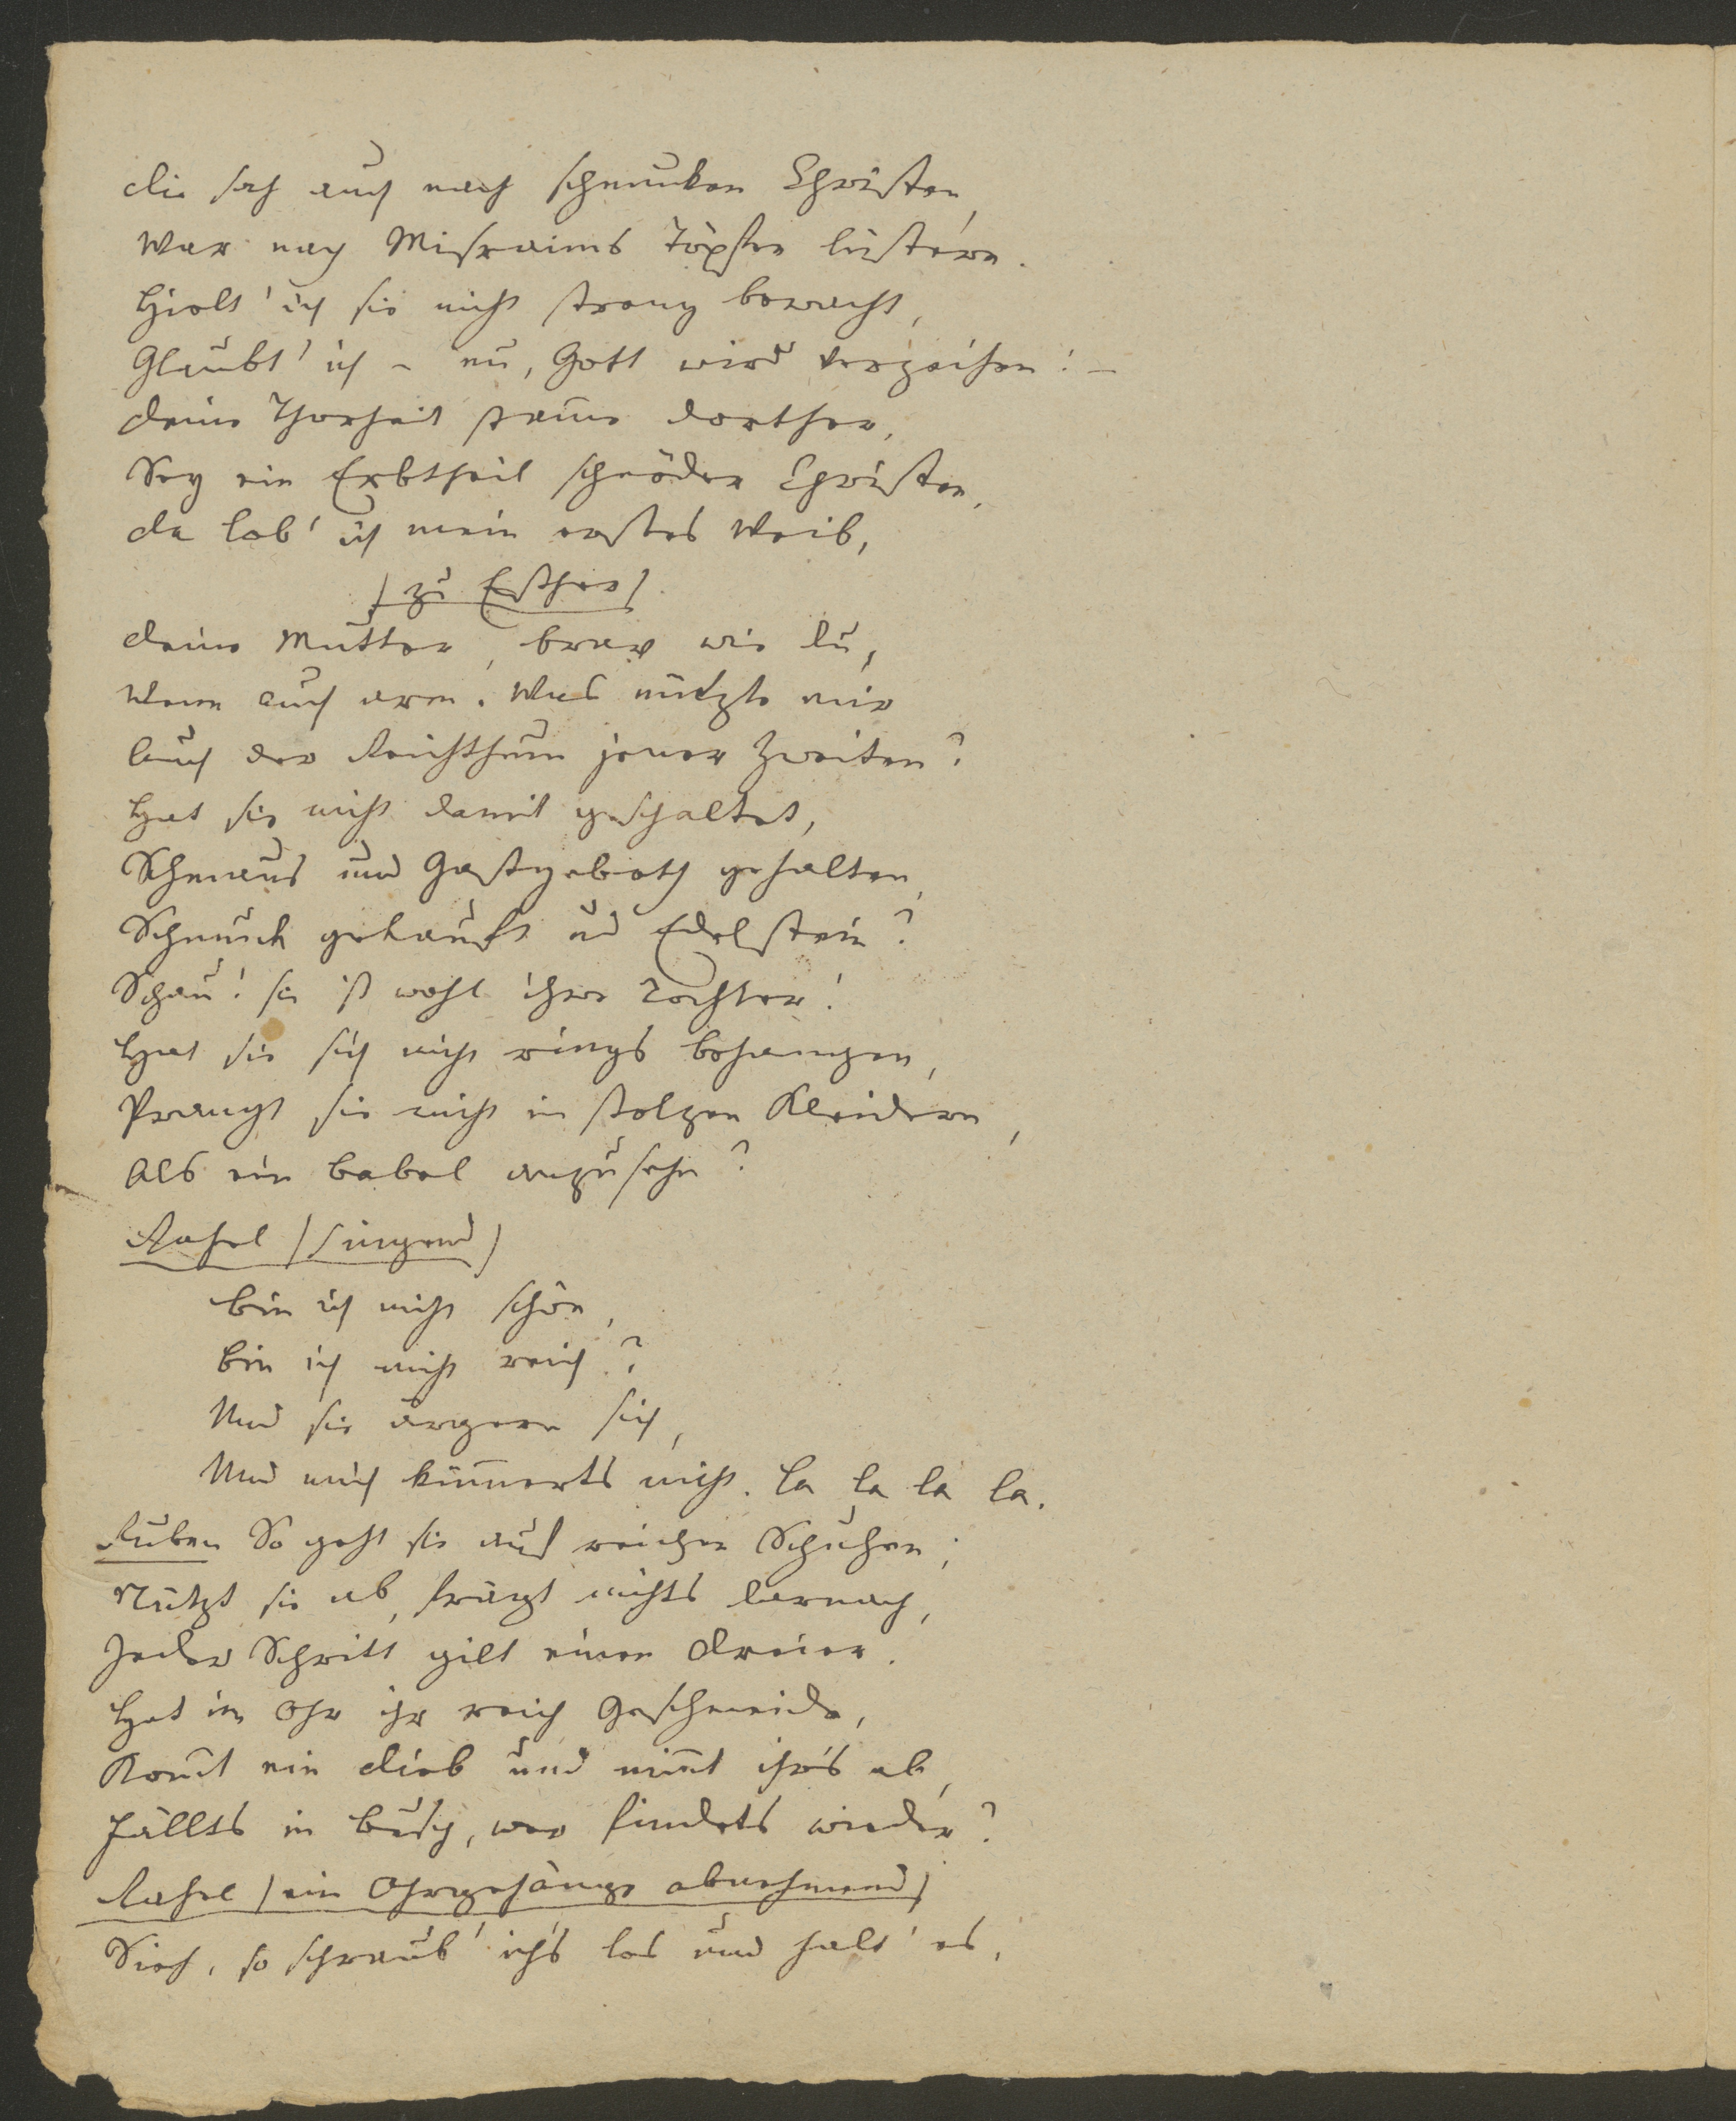 Die sah auch nach schmucken Christen,
War nach Misraims Töpfen lüstern.
Hielt' ich sie nicht streng bewacht,
Glaubt' ich – nu, Gott wird verzeihen! –
Deine Thorheit stam̄e dorther,
Sey ein Erbtheil schnöder Christen.
Da lob' ich mein erstes Weib,
(zu Esther)
Deine Mutter, brav wie du,
Wenn auch arm. Was nützte mir
Auch der Reichthum jener Zweiten?
Hat sie nicht damit geschaltet,
Schmaus und Gastgeboth gehalten,
Schmuck gekauft und Edelstein?
Schau! sie ist wohl ihre Tochter!
Hat sie sich nicht rings behangen,
Prangt sie nicht in stolzen Kleidern,
Als ein Babel anzusehn?
Rahel (singend)
Bin ich nicht schön,
Bin ich nicht reich?
Und sie ärgern sich,
Und mich küm̄erts nicht. La la la la.
Ruben So geht sie auf reichen Schuhen;
Nützt sie ab, frägt nichts darnach,
Jeder Schritt gilt einen Dreier.
Hat im Ohr ihr reich Geschmeide,
Kom̄t ein Dieb und nim̄t ihrs ab,
Fällts in Busch, wer findets wieder?
Rahel (ein Ohrgehänge abnehmend)
Sieh, so schraub' ich's los und halt' es,